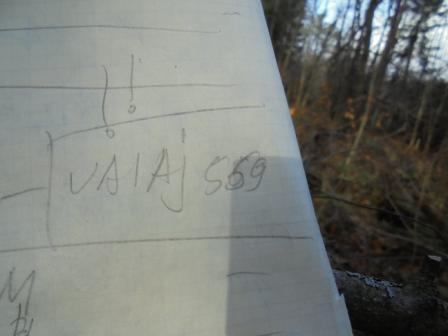 VAIAJ 559
M